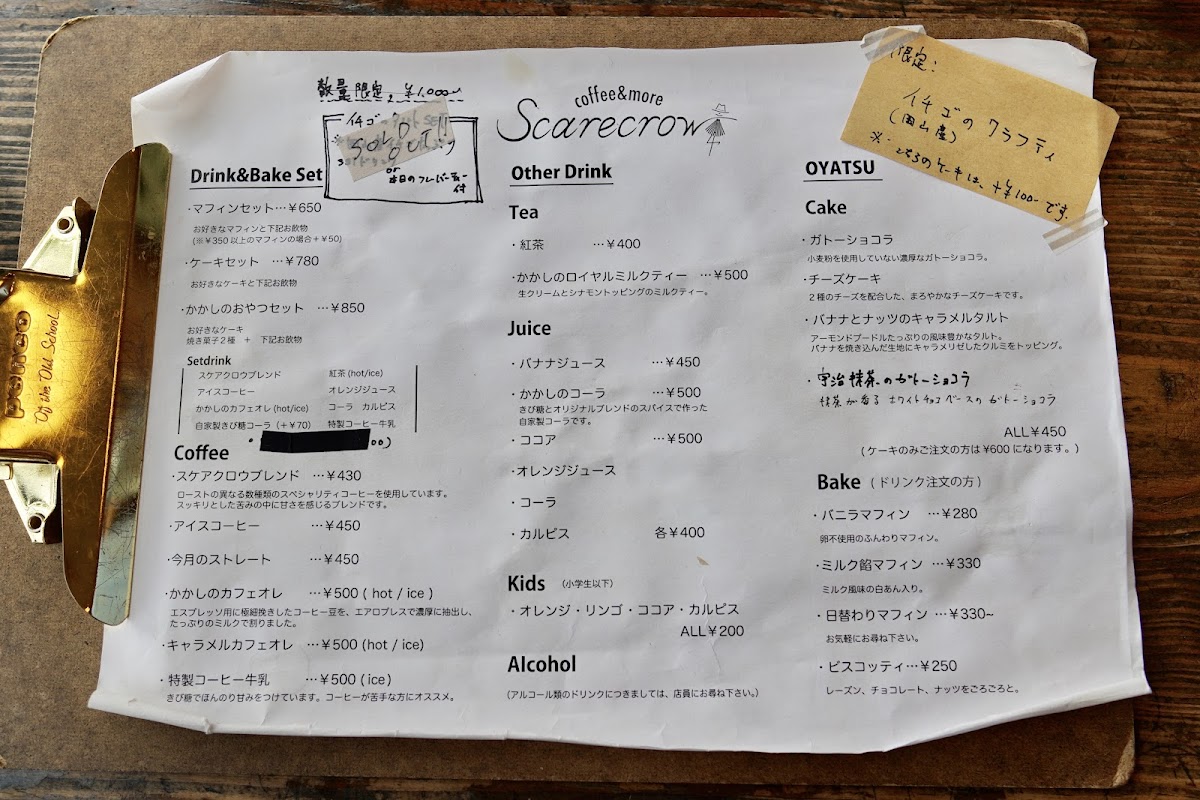 penco
Of the Old School
数量限定 ¥1,000
イチゴ
SOLD OUT!!
or
本日のフレーバーティー
付
coffee&more
Scarecrow
限定:
イチゴのクラフティ
(岡山産)
※こちらのケーキは、+¥100-です。
Drink&Bake Set
・マフィンセット…¥650
お好きなマフィンと下記お飲物
(※¥350以上のマフィンの場合+¥50)
・ケーキセット …¥780
お好きなケーキと下記お飲物
・かかしのおやつセット …¥850
お好きなケーキ
焼き菓子2種 + 下記お飲物
Setdrink
スケアクロウブレンド 紅茶(hot/ice)
アイスコーヒー オレンジジュース
かかしのカフェオレ(hot/ice) コーラ カルピス
自家製きび糖コーラ(+¥70) 特製コーヒー牛乳
Coffee
・スケアクロウブレンド …¥430
ローストの異なる数種類のスペシャリティコーヒーを使用しています。
スッキリとした苦みの中に甘さを感じるブレンドです。
・アイスコーヒー …¥450
・今月のストレート …¥450
・かかしのカフェオレ …¥500 ( hot / ice )
エスプレッソ用に極細挽きしたコーヒー豆を、エアロプレスで濃厚に抽出し、
たっぷりのミルクで割りました。
・キャラメルカフェオレ …¥500 (hot / ice)
・特製コーヒー牛乳 …¥500 (ice)
きび糖でほんのり甘みをつけています。コーヒーが苦手な方にオススメ。
Other Drink
Tea
・紅茶 …¥400
・かかしのロイヤルミルクティー …¥500
生クリームとシナモントッピングのミルクティー。
Juice
・バナナジュース …¥450
・かかしのコーラ …¥500
きび糖とオリジナルブレンドのスパイスで作った
自家製コーラです。
・ココア …¥500
・オレンジジュース
・コーラ
・カルピス 各¥400
Kids (小学生以下)
・オレンジ・リンゴ・ココア・カルピス
ALL¥200
Alcohol
(アルコール類のドリンクにつきましては、店員にお尋ね下さい。)
OYATSU
Cake
・ガトーショコラ
小麦粉を使用していない濃厚なガトーショコラ。
・チーズケーキ
2種のチーズを配合した、まろやかなチーズケーキです。
・バナナとナッツのキャラメルタルト
アーモンドプードルたっぷりの風味豊かなタルト。
バナナを焼き込んだ生地にキャラメリゼしたクルミをトッピング。
・宇治抹茶のガトーショコラ
抹茶が香るホワイトチョコベースのガトーショコラ
ALL¥450
(ケーキのみご注文の方は¥600になります。)
Bake (ドリンク注文の方)
・バニラマフィン …¥280
卵不使用のふんわりマフィン。
・ミルク餡マフィン …¥330
ミルク風味の白あん入り。
・日替わりマフィン …¥330~
お気軽にお尋ね下さい。
・ビスコッティ…¥250
レーズン、チョコレート、ナッツをごろごろと。